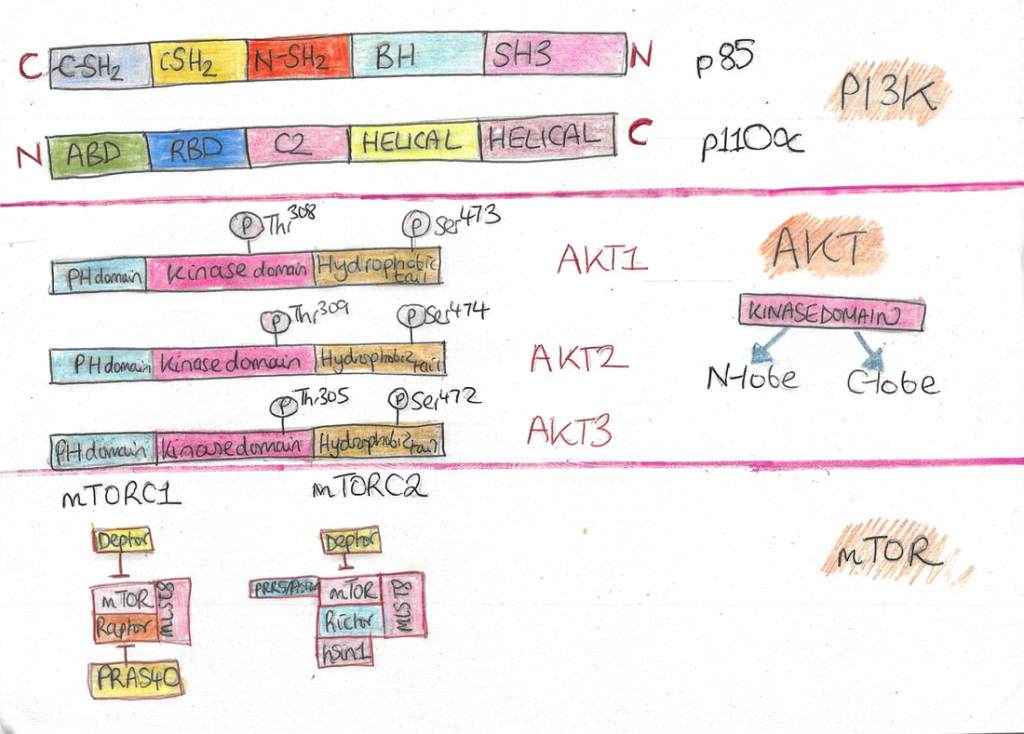 C C-SH2 cSH2 N-SH2 BH SH3 N p85
PI3K
N ABD RBD C2 HELICAL HELICAL C p110α
P Thr308 P Ser473
PH domain Kinase domain Hydrophobic tail
AKT1
AKT
P Thr309 P Ser474
PH domain Kinase domain Hydrophobic tail
AKT2
P Thr305 P Ser472
PH domain Kinase domain Hydrophobic tail
AKT3
KINASE DOMAIN
N-lobe C-lobe
mTORC1
Deptor
mTOR
Raptor
MLST8
PRAS40
mTORC2
Deptor
mTOR
Rictor
hSin1
MLST8
mTOR